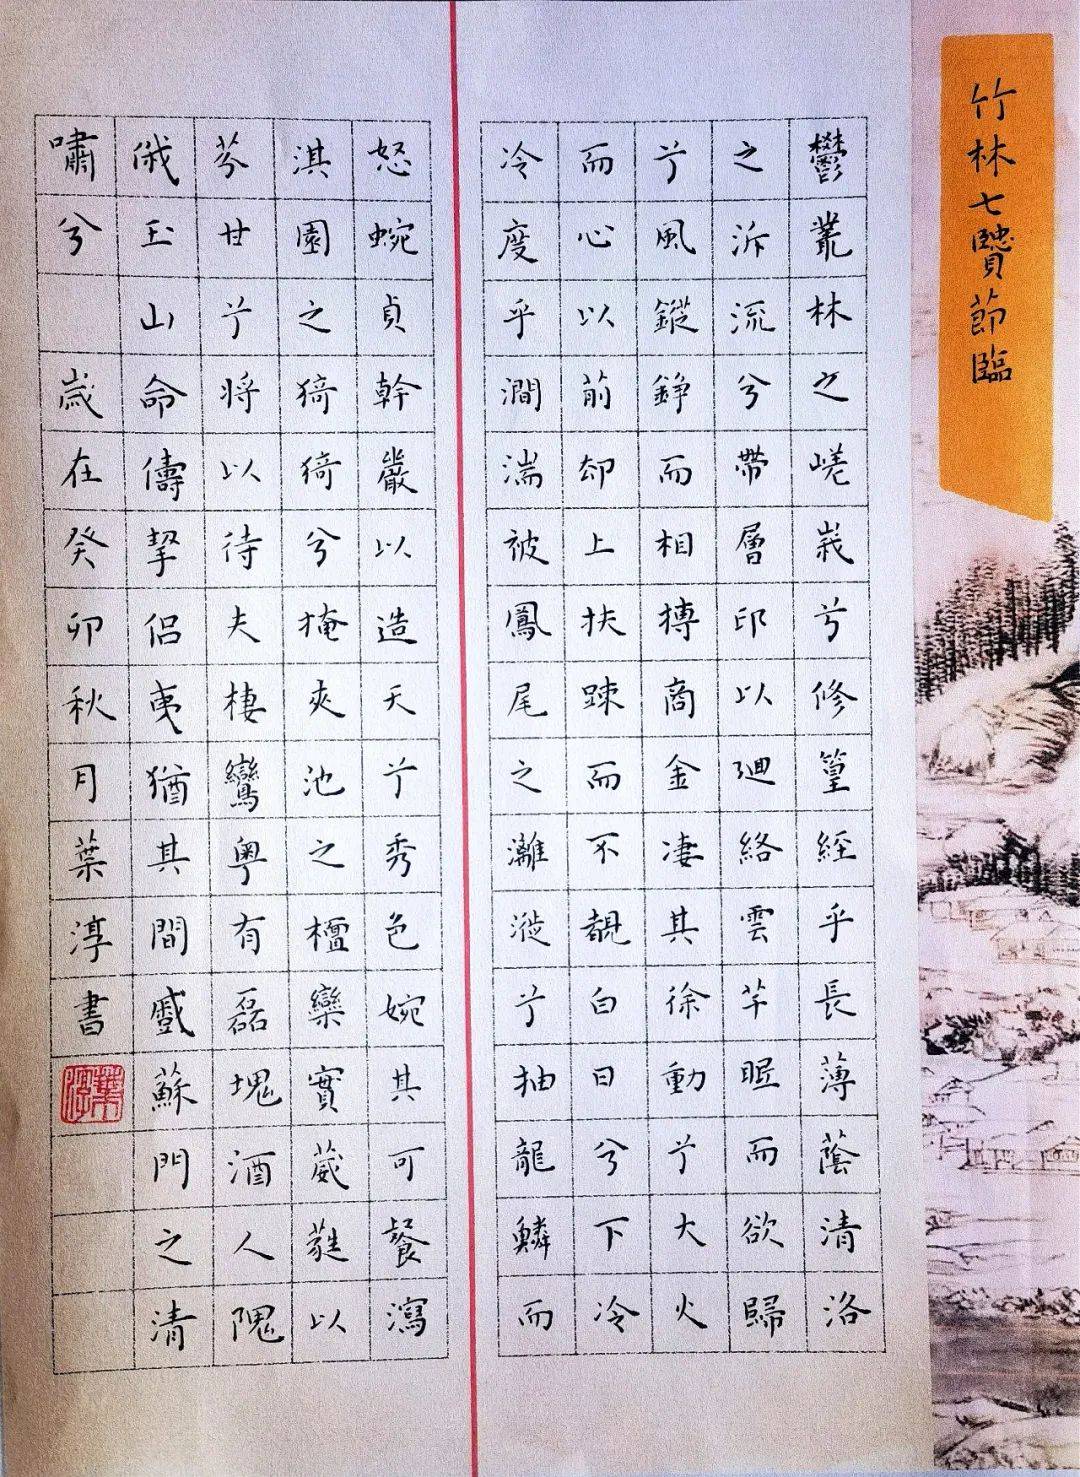 竹林七賢節臨
鬱叢林之嵯峩兮修篁經乎長薄蔭清洛
之泝流兮帶層邱以廻絡雲芊眠而欲歸
兮風鏦錚而相摶商金凄其徐動兮大火
而心以前却上扶踈而不覩白日兮下冷
冷度乎澗湍被鳳尾之灕漇兮抽龍鱗而
怒蜿貞幹嚴以造天兮秀色婉其可餐瀉
淇園之猗猗兮掩夾池之檀欒實葳蕤以
芬甘兮将以待夫棲鸞粤有磊塊酒人隗
俄玉山命儔挈侣夷猶其間戲蘇門之清
嘯兮 歲在癸卯秋月葉淳書
葉淳